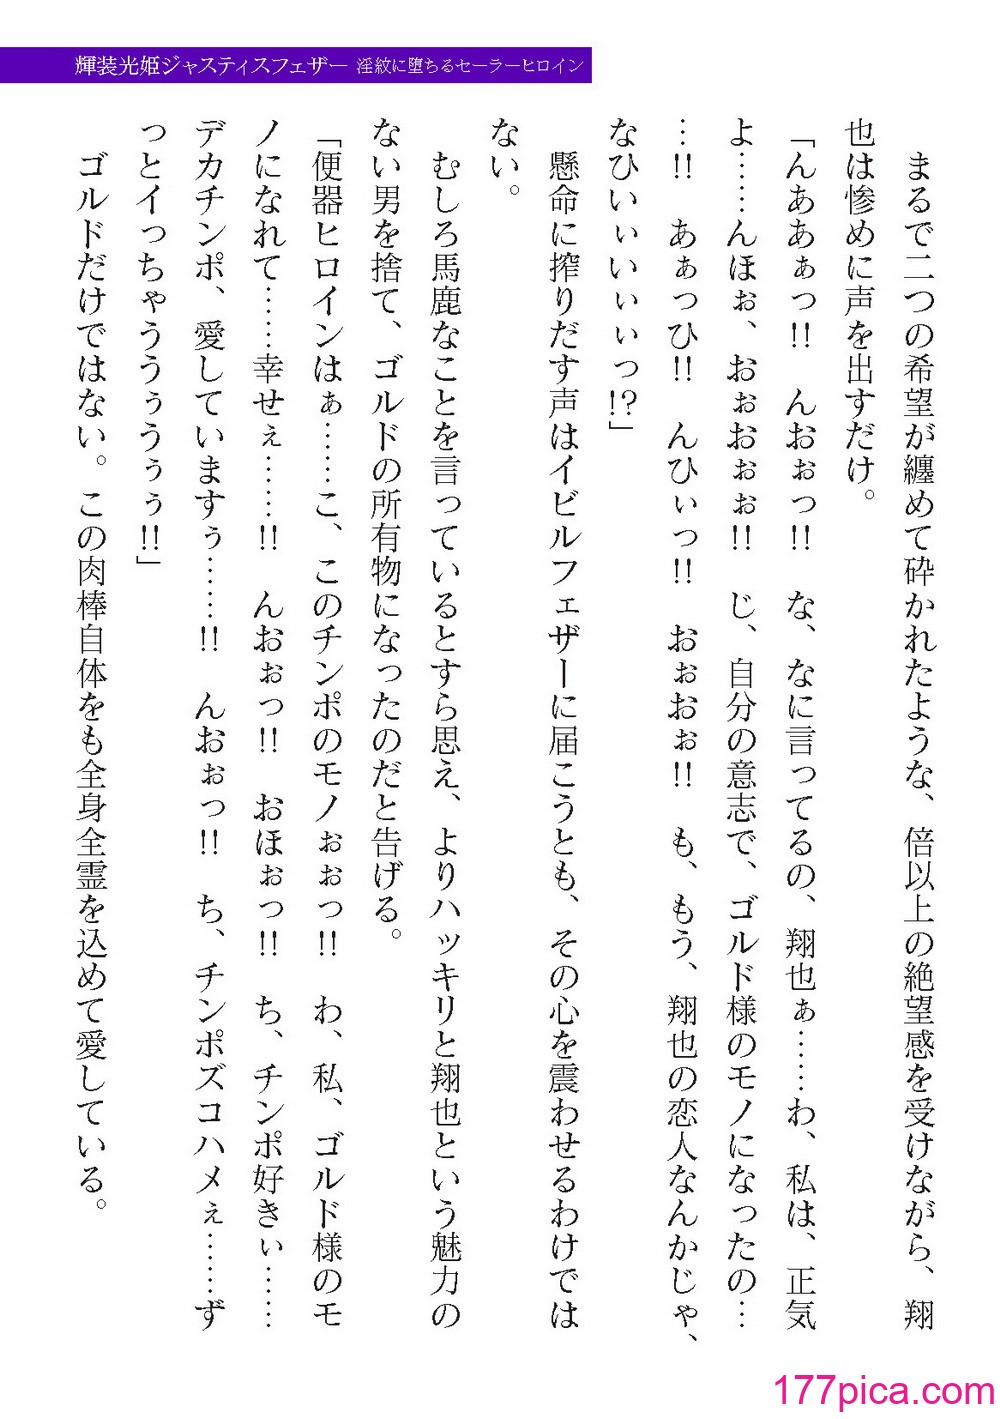 輝装光姫ジャスティスフェザー 淫紋に堕ちるセーラーヒロイン
まるで二つの希望が纏めて砕かれたような、倍以上の絶望感を受けながら、翔
也は惨めに声を出すだけ。
「んああぁっ!! んおぉっ!! な、なに言ってるの、翔也ぁ……わ、私は、正気
よ……んほぉ、おぉおぉぉ!! じ、自分の意志で、ゴルド様のモノになったの…
…!! あぁっひ!! んひぃっ!! おぉおぉ!! も、もう、翔也の恋人なんかじゃ、
なひいぃいぃぃっ!?」
懸命に搾りだす声はイビルフェザーに届こうとも、その心を震わせるわけでは
ない。
むしろ馬鹿なことを言っているとすら思え、よりハッキリと翔也という魅力の
ない男を捨て、ゴルドの所有物になったのだと告げる。
「便器ヒロインはぁ……こ、このチンポのモノぉぉっ!! わ、私、ゴルド様のモ
ノになれて……幸せぇ……!! んおぉっ!! おほぉっ!! ち、チンポ好きぃ……
デカチンポ、愛していますぅ……!! んおぉっ!! ち、チンポズコハメぇ……ず
っとイっちゃううぅうぅぅ!!」
ゴルドだけではない。この肉棒自体をも全身全霊を込めて愛している。
177pica.com